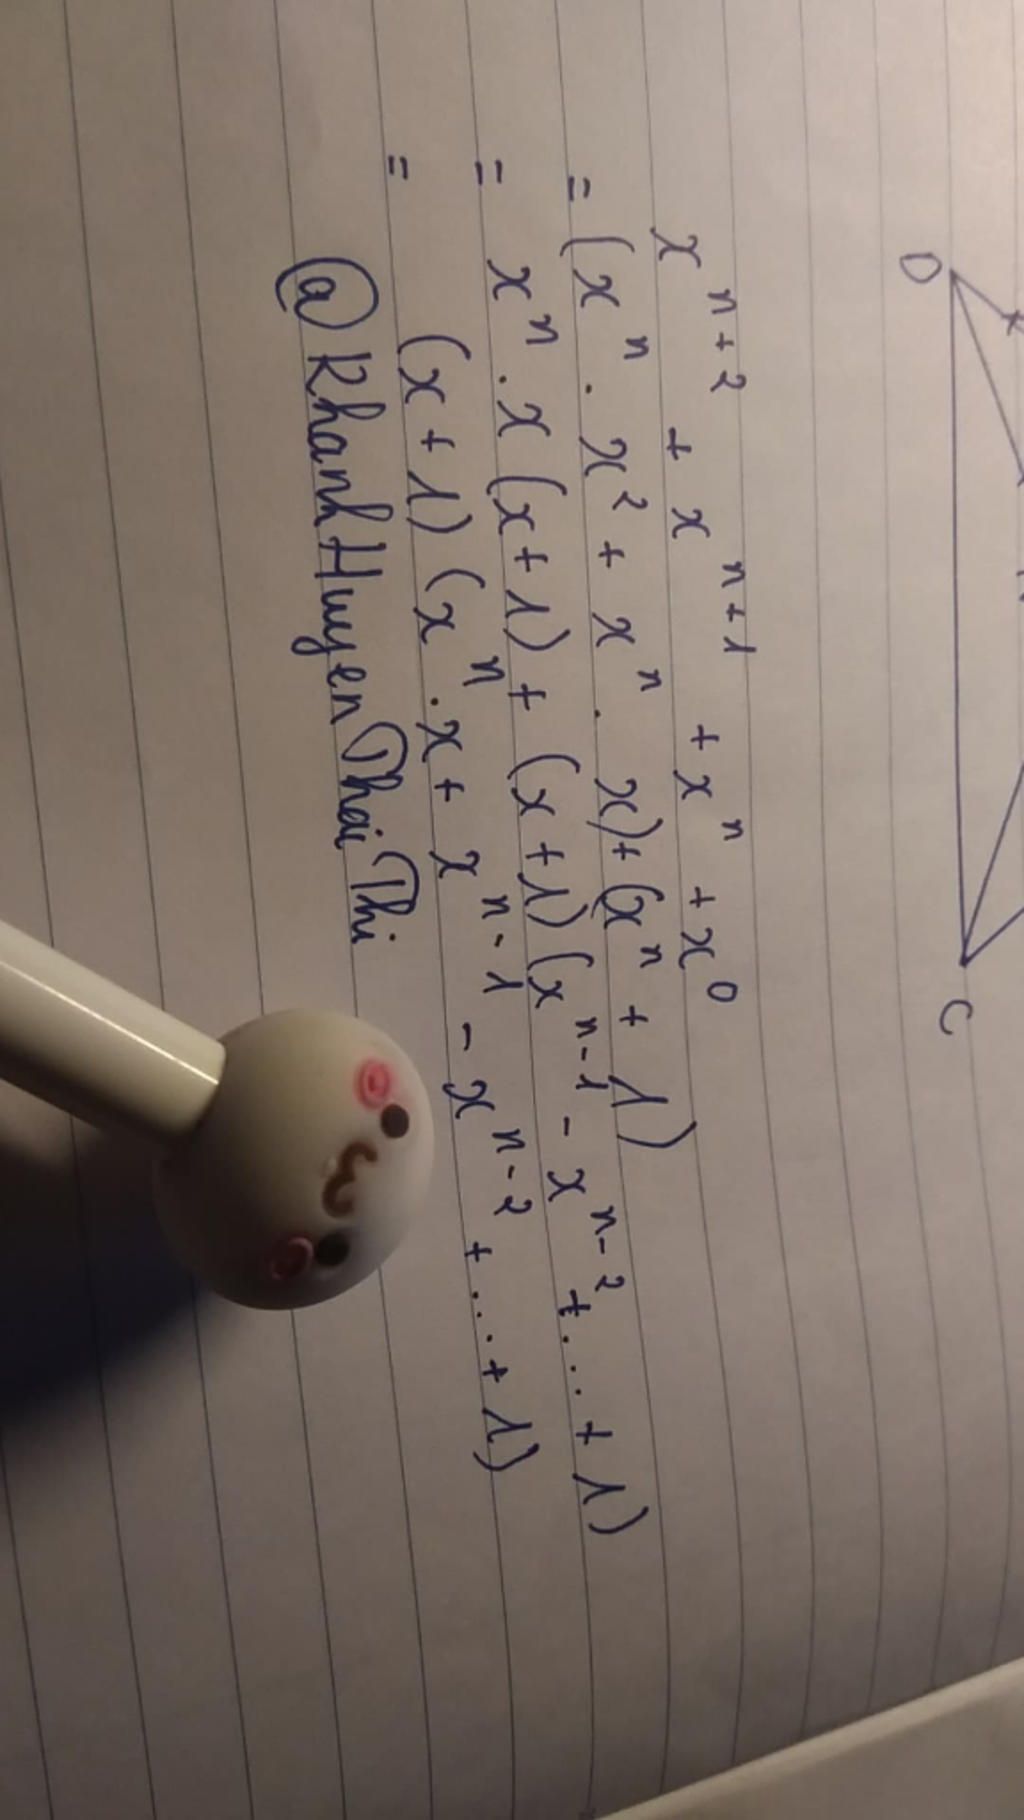 D C
x^{n+2} + x^{n+1} + x^n + x^0
= (x^n . x^2 + x^n . x) + (x^n + 1)
= x^n . x (x + 1) + (x + 1) (x^{n-1} - x^{n-2} + ... + 1)
= (x + 1) (x^n . x + x^{n-1} - x^{n-2} + ... + 1)
@KhanhHuyenThaiThi